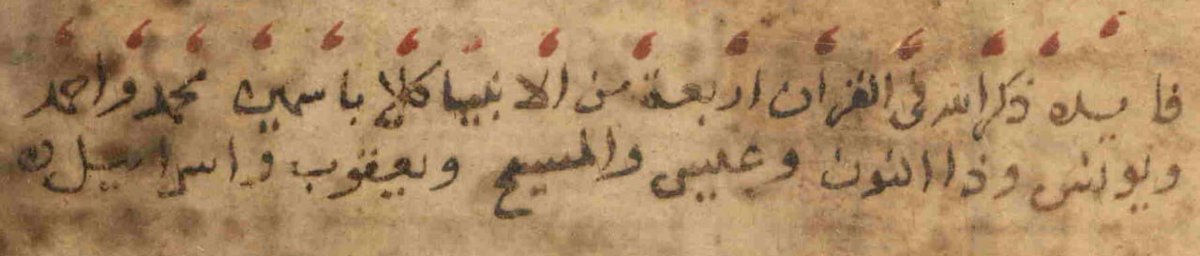 فايده ذكر الله في القران اربعة من الانبيا كلا باسمين محمد واحمد
ويونس وذا النون وعيسى والمسيح ويعقوب واسراييل